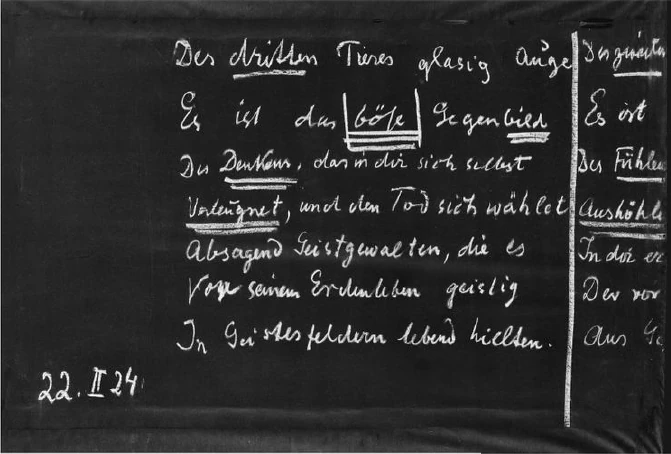 Des dritten Tieres glasig Auge
Es ist das böse Gegenbild
Des Denkens, das in dir sich selbst
Verleugnet, und den Tod sich wählet
Absagend Geistgewalten, die es
Vor seinem Erdenleben geistig
In Geistesfeldern lebend hielten.
22. II 24
Des zweiten
Es ist
Des Fühlens
Aushöhl
In dir
Der vor
Aus